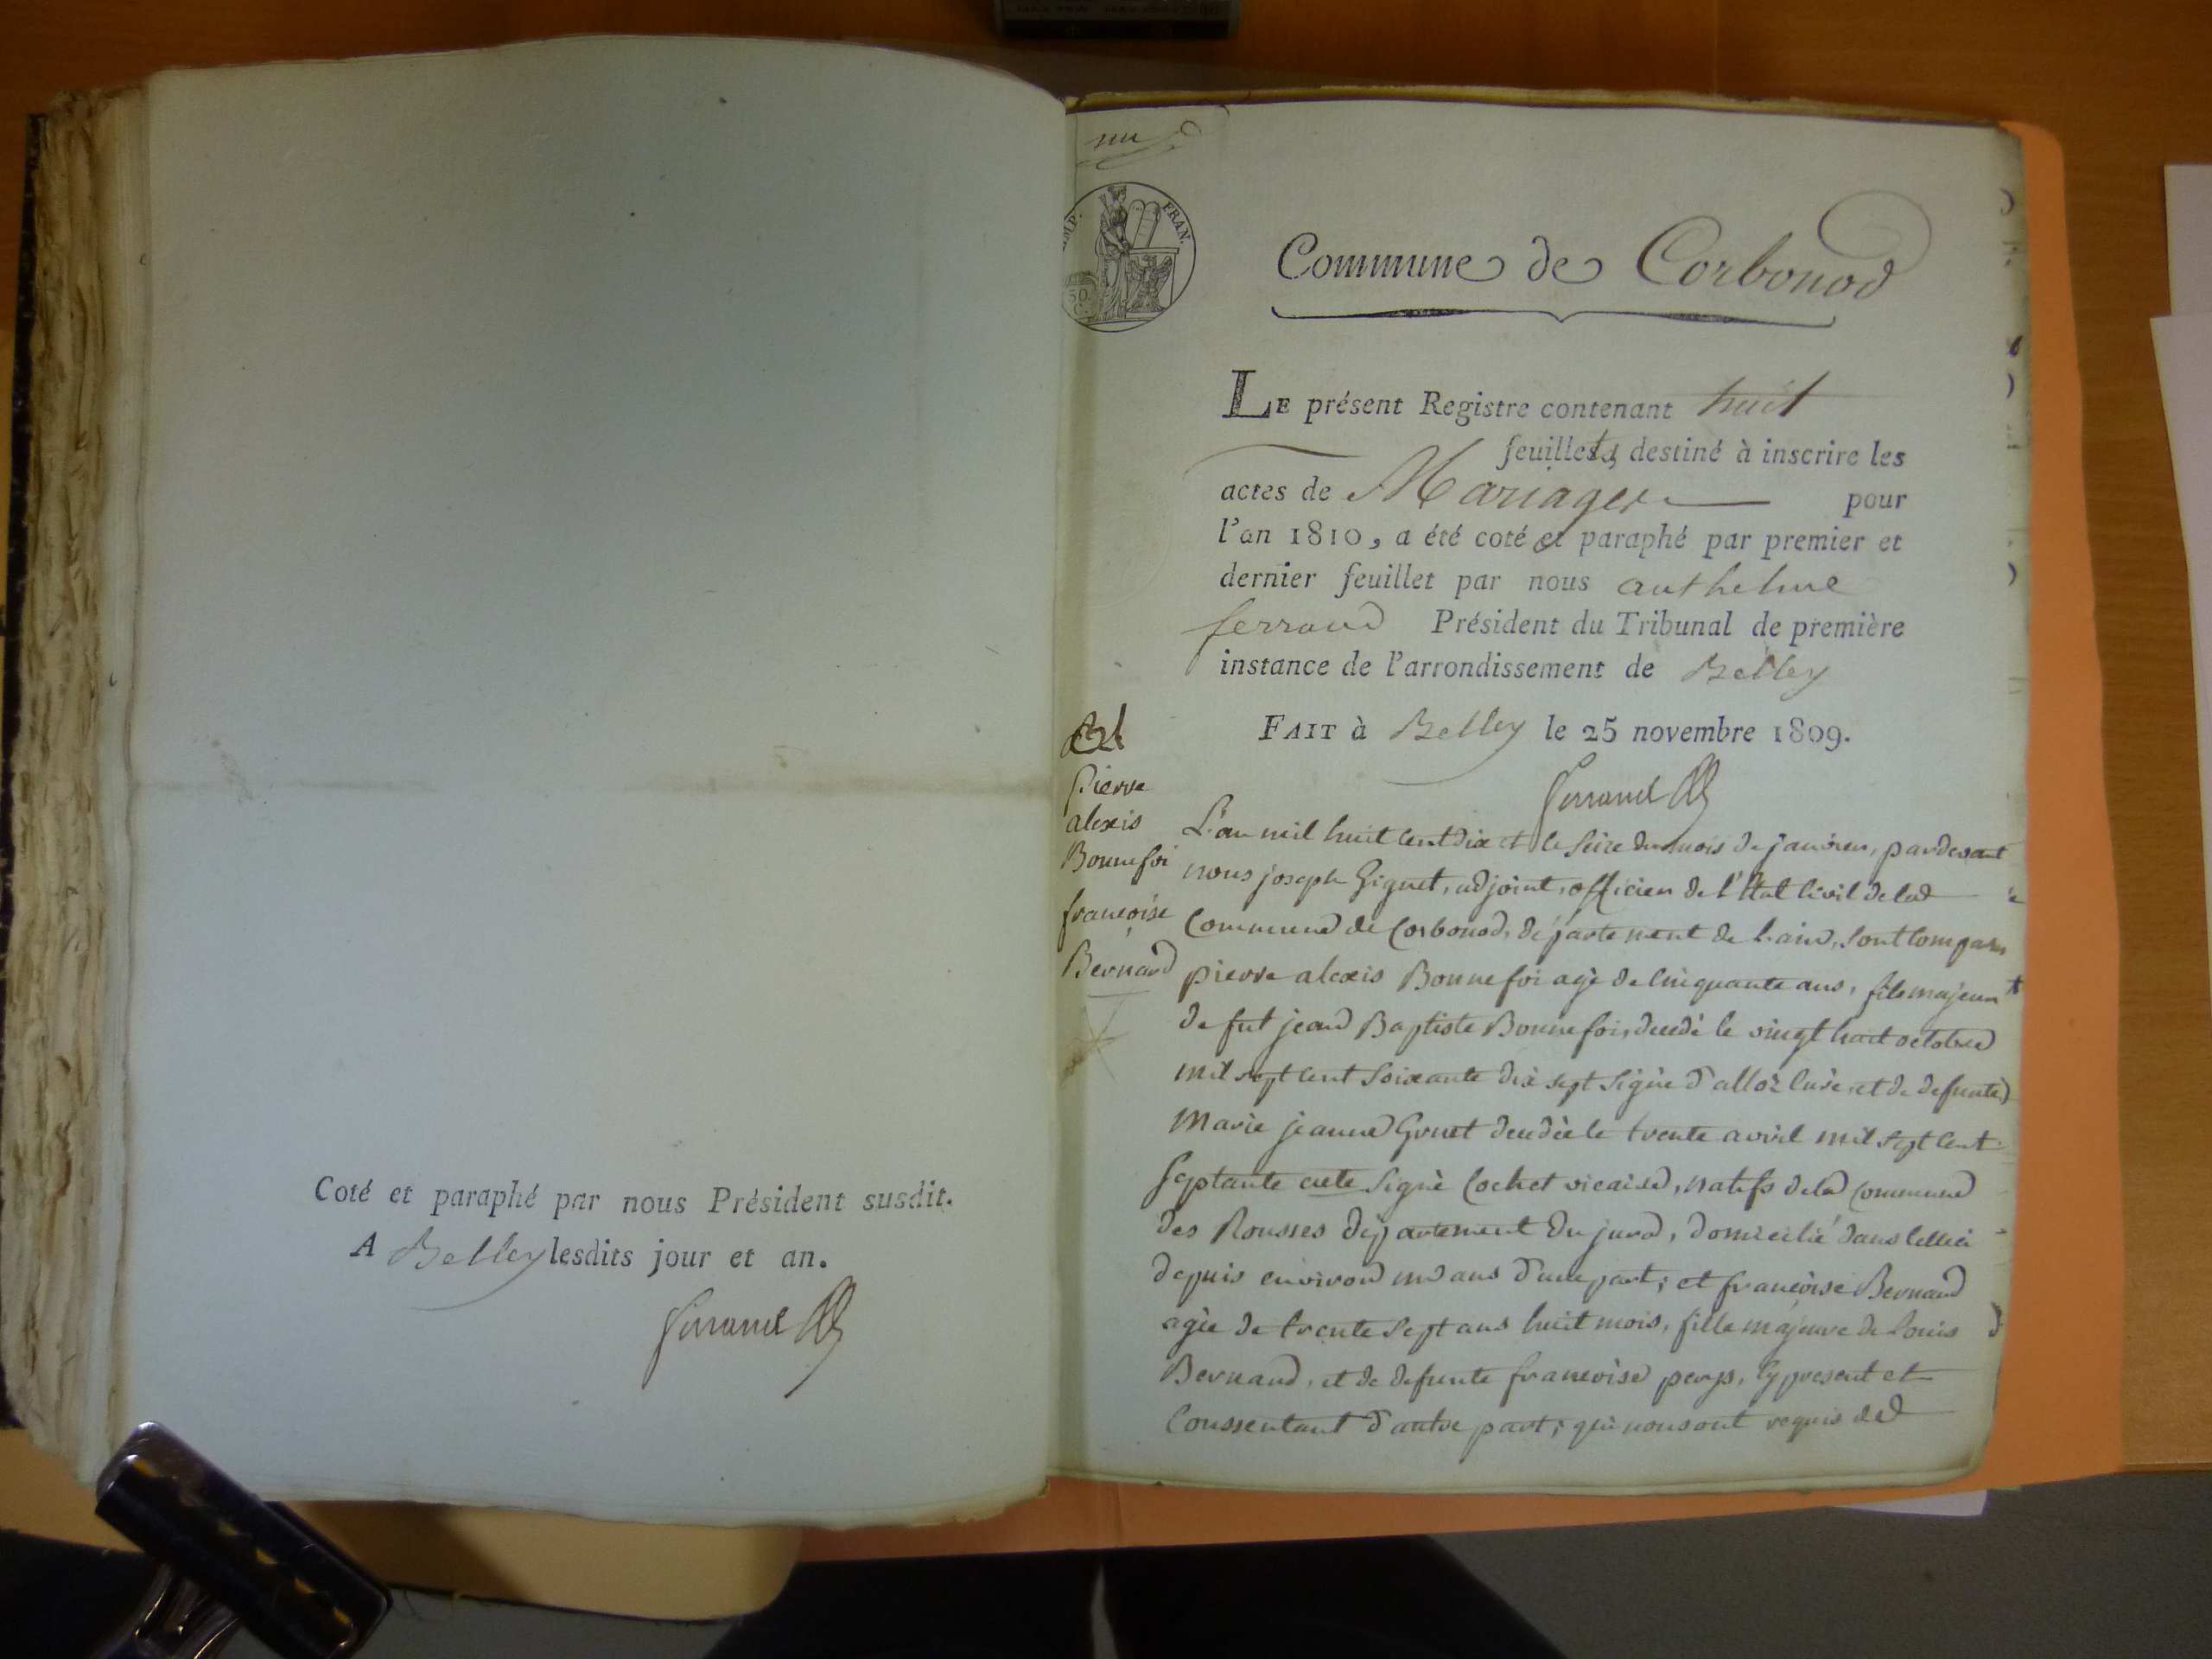 Coté et paraphé par nous Président susdit.
A Belley lesdits jour et an.
Ferrand
IMP. FRAN.
50
C.
Commune de Corbonod
LE présent Registre contenant huit
feuillets, destiné à inscrire les
actes de Mariages pour
l'an 1810, a été coté et paraphé par premier et
dernier feuillet par nous anthelme
ferrand Président du Tribunal de première
instance de l'arrondissement de Belley
FAIT à Belley le 25 novembre 1809.
Ferrand
Pierre
alexis
Bonnefoi
françoise
Bernard
L'an mil huit cent dix et le seize du mois de janvier, pardevant
nous joseph Giguet, adjoint, officier de l'Etat Civil de la
Commune de Corbonod, département de l'ain, sont comparus
pierre alexis Bonnefoi agé de cinquante ans, fils majeur
de fut jean Baptiste Bonnefoi, decedé le vingt huit octobre
mil sept cent soixante dix sept signé d'alloz curé, et de defunte
Marie jeanne Gruet decedée le trente avril mil sept cent
septante signé Cochet vicaire, natifs de la Commune
des Rousses département du jura, domicilié dans celle ci
depuis environ ans d'une part; et françoise Bernard
agée de trente sept ans huit mois, fille majeure de Louis
Bernard, et de defunte françoise perys, cy present et
Conssentant d'autre part; qui nous ont requis de